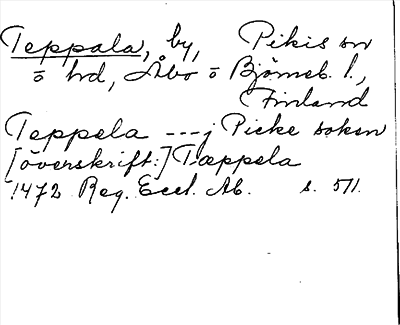 Teppala, by, Pikis sn
o hd, Åbo o Björneb. l.,
Finland
Teppela --- j Picke soken
[överskrift:] Tæppela
1472 Reg. Eccl. Ab. s. 571.